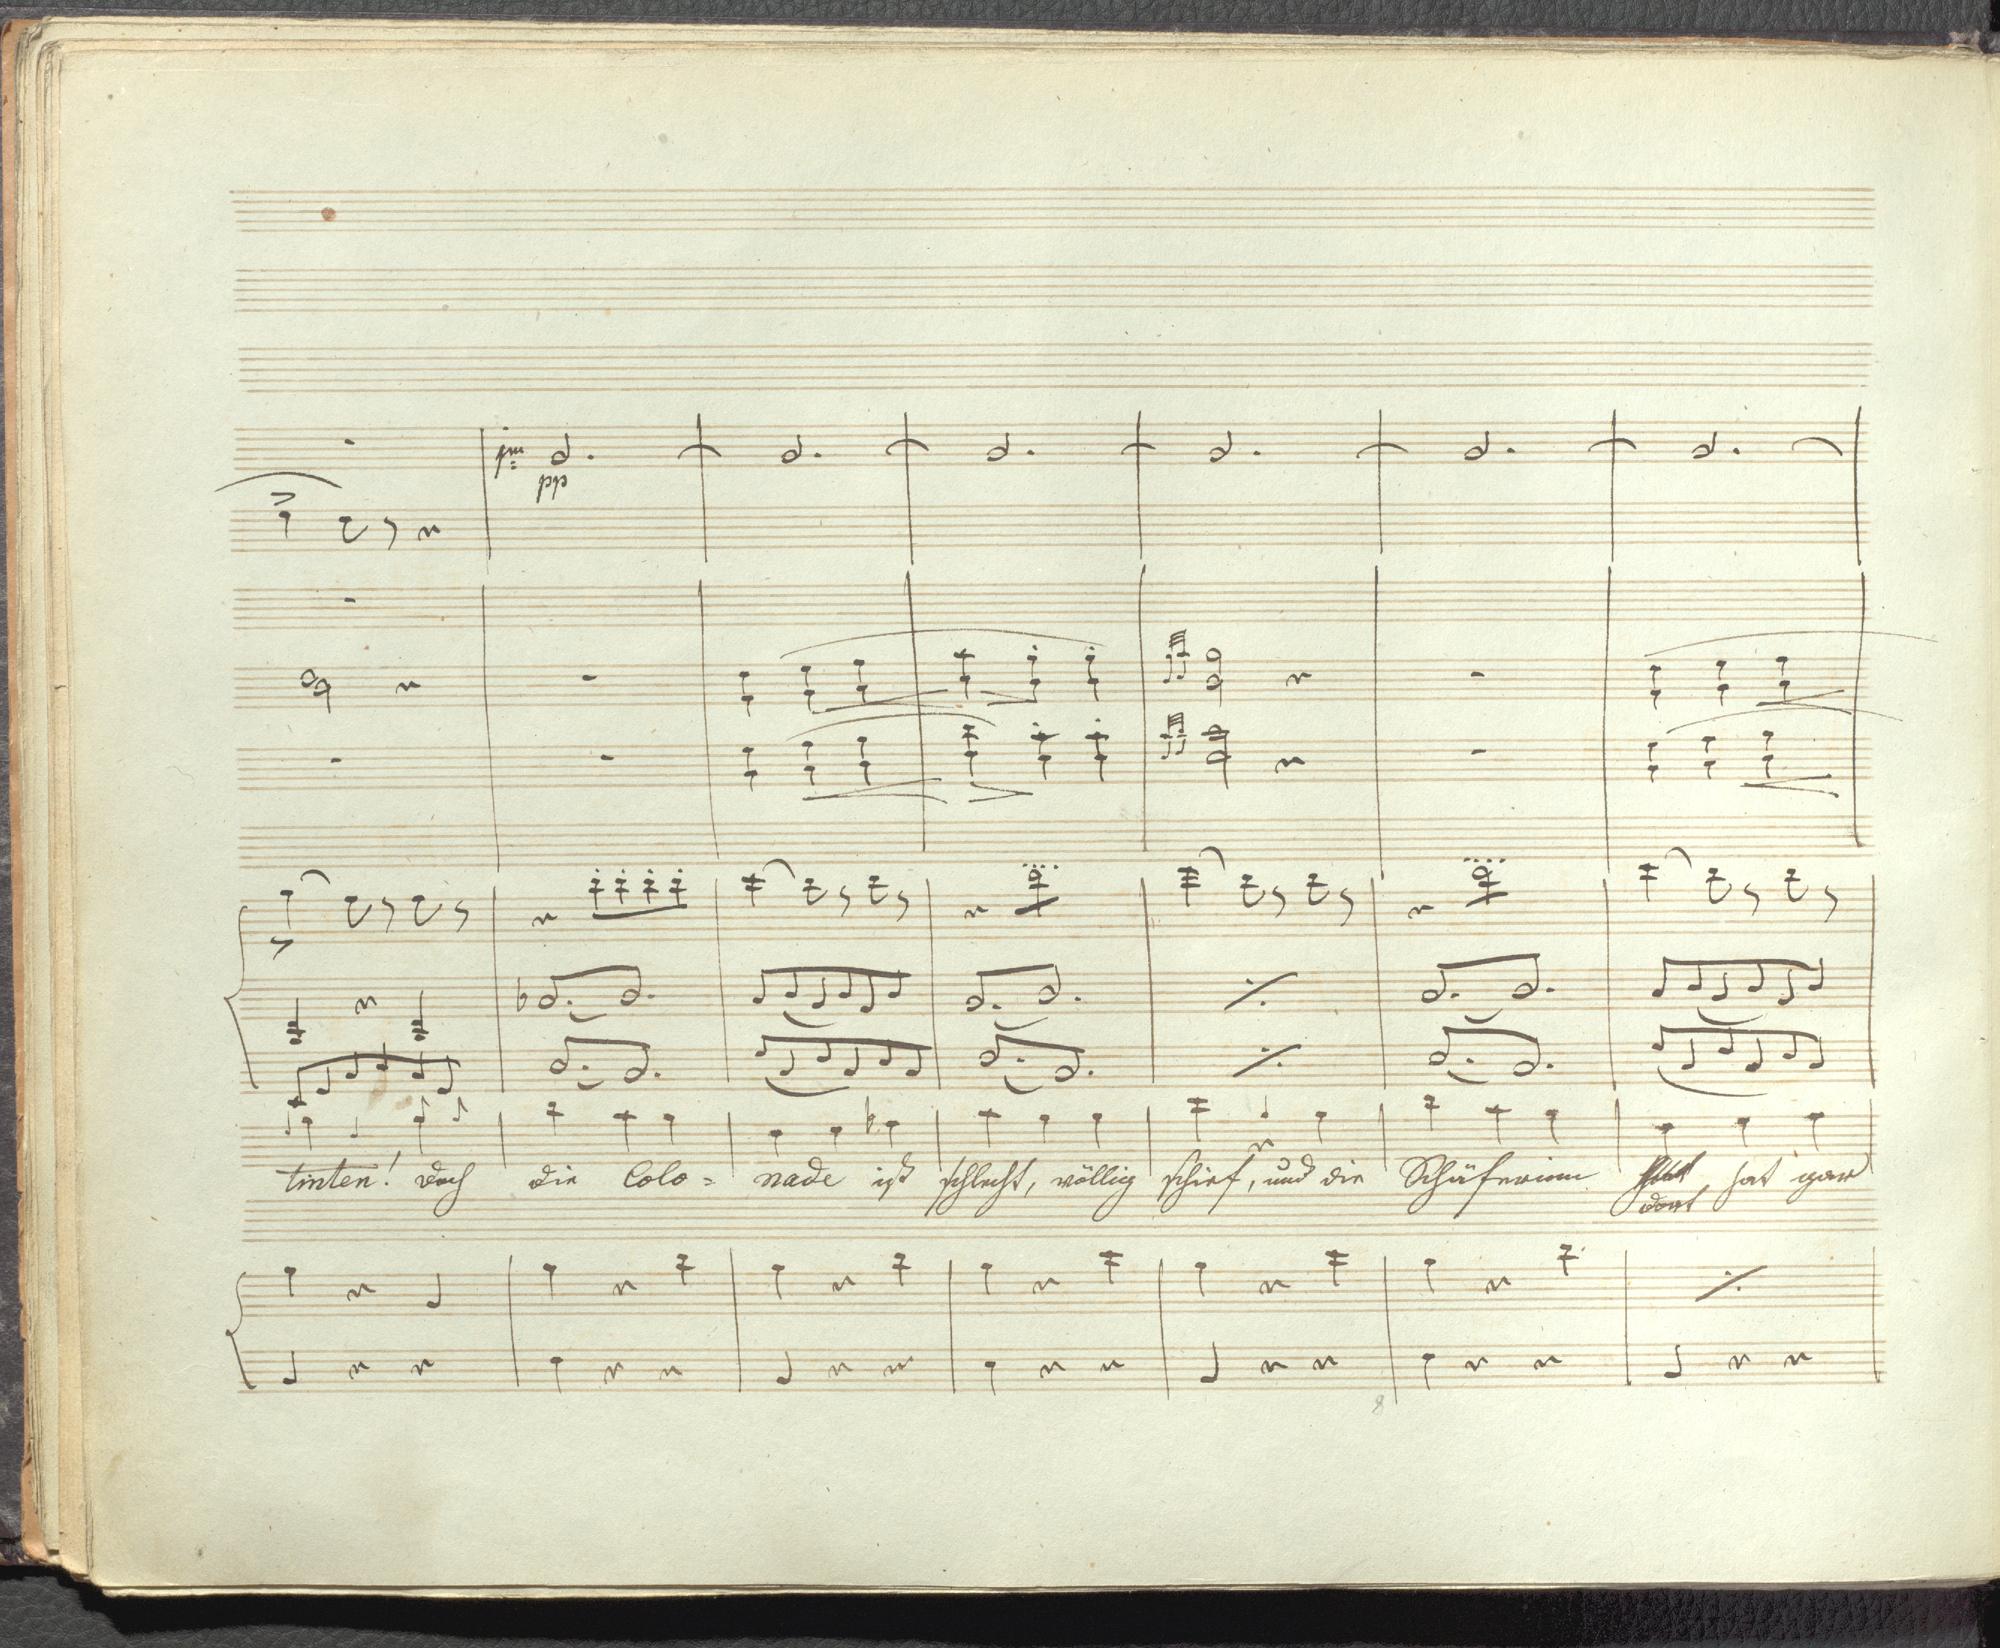 im
pp
tinten! doch die Colo= nade ist schlecht, völlig schief, und die Schäferinn hat gar
dort
8